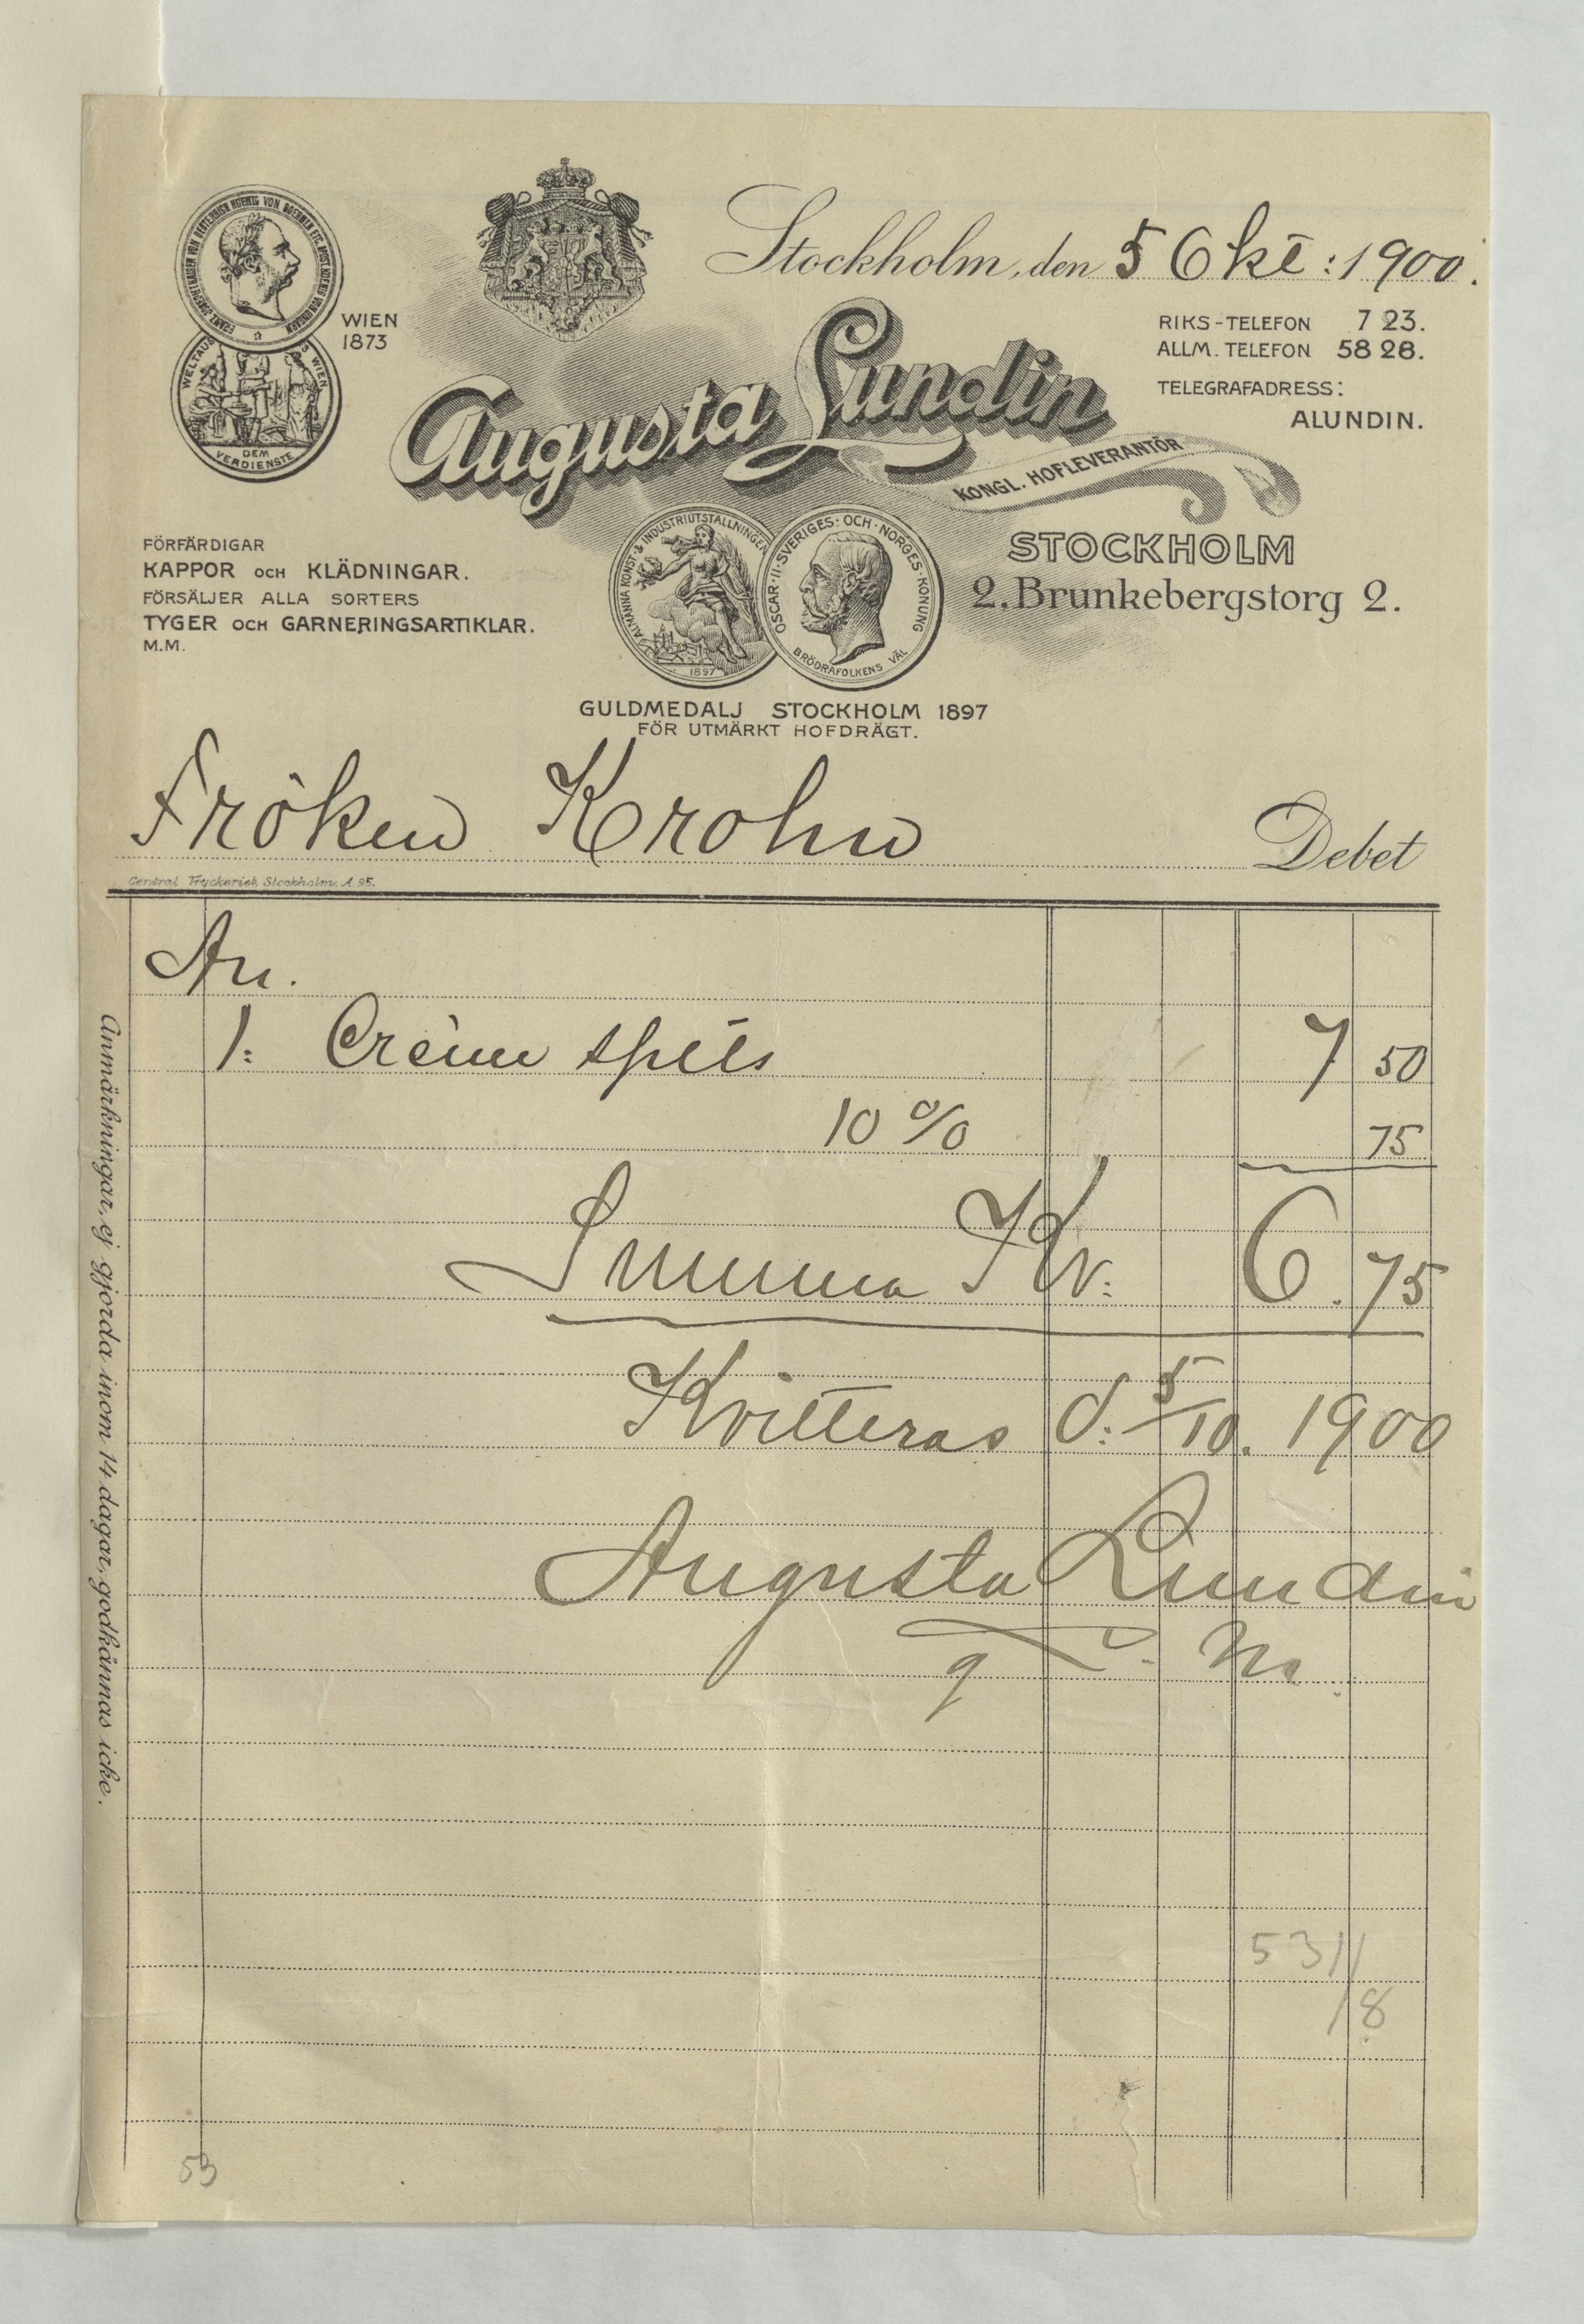 Stockholm, den 5 Okt: 1900.
FRANZ JOSEPH I KAISER VON OESTERREICH KOENIG VON BOEHMEN ETC. APOST. KOENIG VON UNGARN
WIEN
1873
WELTAUS S WIEN
DEM
VERDIENSTE
RIKS-TELEFON 7 23.
ALLM. TELEFON 58 28.
TELEGRAFADRESS:
ALUNDIN.
Augusta Lundin
KONGL. HOFLEVERANTÖR
STOCKHOLM
2, Brunkebergstorg 2.
FÖRFÄRDIGAR
KAPPOR OCH KLÄDNINGAR.
FÖRSÄLJER ALLA SORTERS
TYGER OCH GARNERINGSARTIKLAR.
M.M.
ALLMÄNNA KONST- & INDUSTRIUTSTÄLLNINGEN
1897
OSCAR·II·SVERIGES·OCH·NORGES·KONUNG
BRÖDRAFOLKENS VÄL
GULDMEDALJ STOCKHOLM 1897
FÖR UTMÄRKT HOFDRÄGT.
Fröken Krohn Debet
Central Tryckeriet, Stockholm. A 95.
An.
1: Crème spets 7 50
10 % 75
Summa Kr: 6.75
Kvitteras d: 5/10. 1900
Augusta Lundin
Anmärkningar, ej gjorda inom 14 dagar, godkännas icke.
5311
18
53